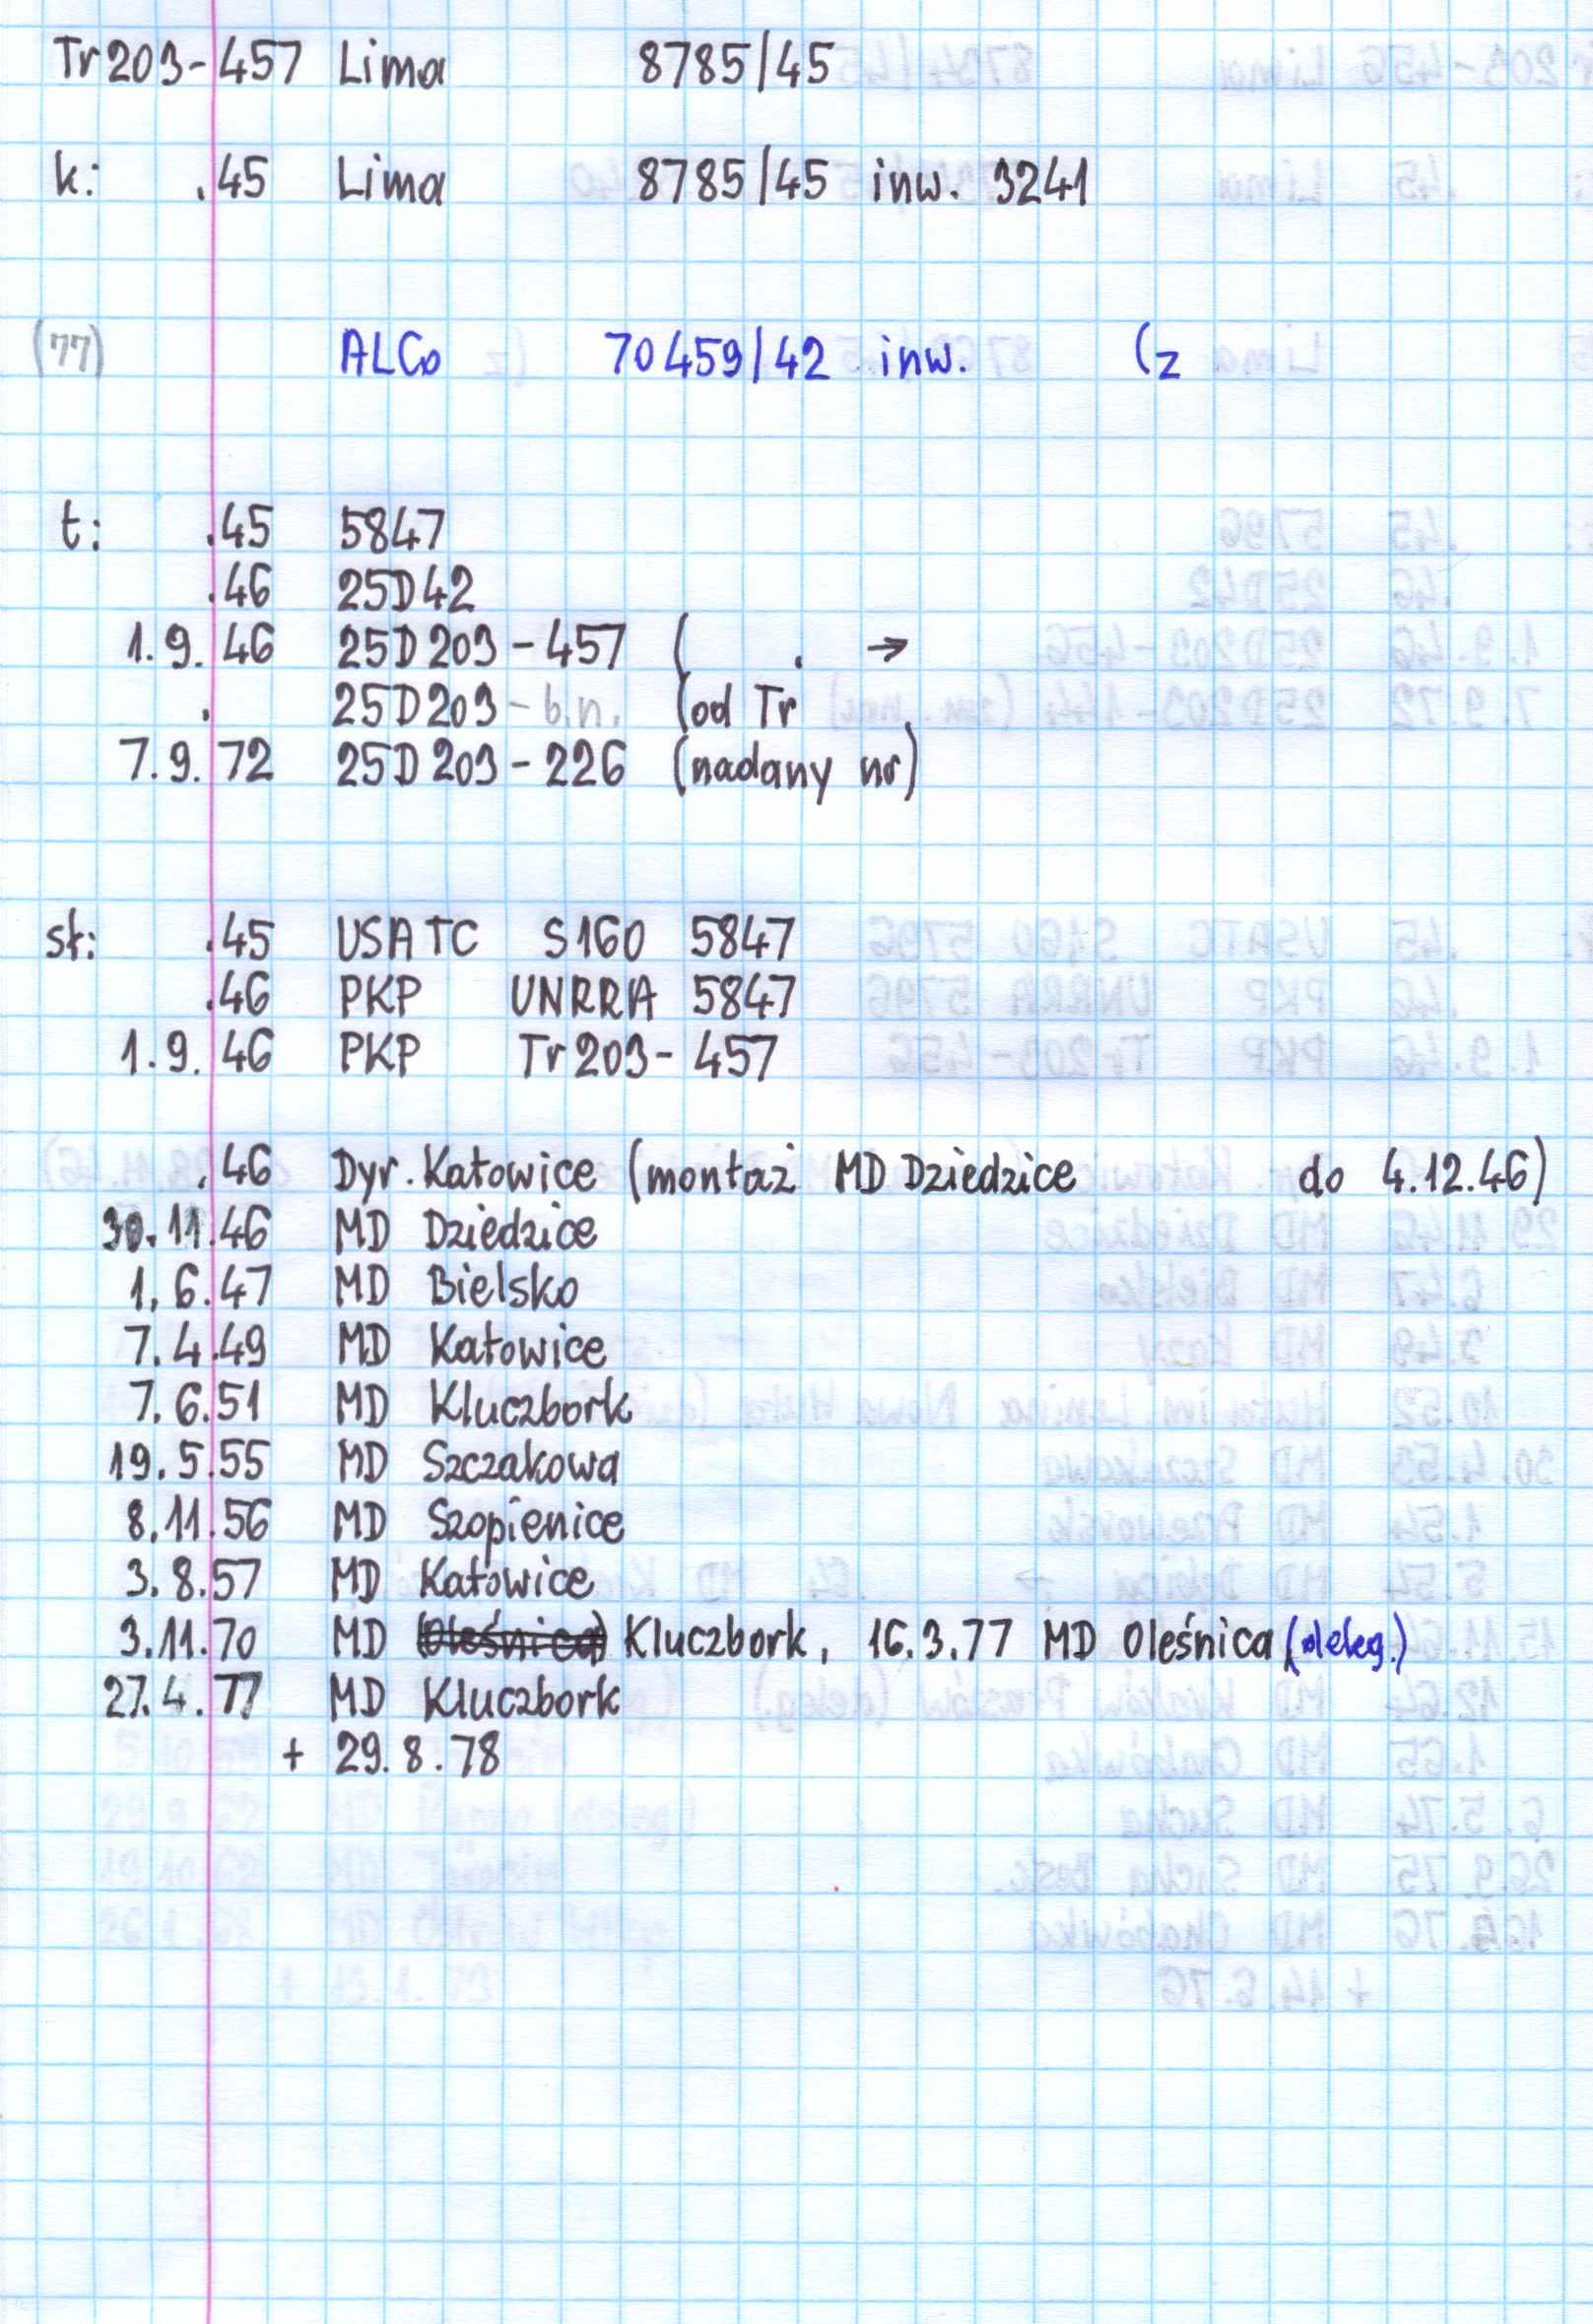 Tr203-457 Lima 8785/45
k: .45 Lima 8785/45 inw. 3241
(77) ALCo 70459/42 inw. (z
t: .45 5847
.46 25D42
1.9.46 25D203-457 ( . →
. 25D203-b.n. (od Tr .
7.9.72 25D203-226 (nadany nr)
sł: .45 USATC S160 5847
.46 PKP UNRRA 5847
1.9.46 PKP Tr203-457
.46 Dyr. Katowice (montaż MD Dziedzice do 4.12.46)
30.11.46 MD Dziedzice
1.6.47 MD Bielsko
7.4.49 MD Katowice
7.6.51 MD Kluczbork
19.5.55 MD Szczakowa
8.11.56 MD Szopienice
3.8.57 MD Katowice
3.11.70 MD (Oleśnica) Kluczbork, 16.3.77 MD Oleśnica (deleg.)
27.4.77 MD Kluczbork
+ 29.8.78